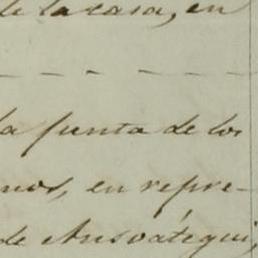 de la casa, en
la junta de los
nos, en repre-
de Ansoátegui,